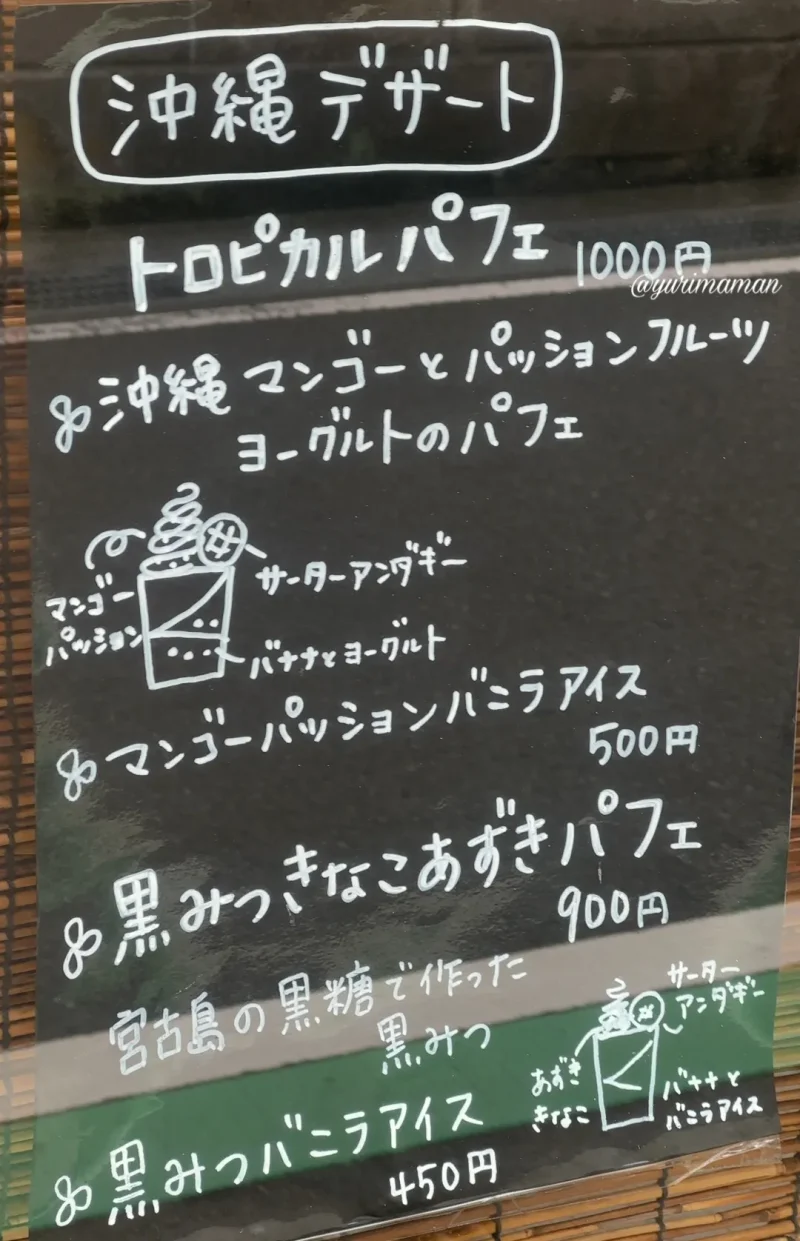 沖縄デザート
トロピカルパフェ 1000円
@yurimaman
沖縄マンゴーとパッションフルーツ
ヨーグルトのパフェ
サーターアンダギー
マンゴー
パッション
バナナとヨーグルト
マンゴーパッションバニラアイス
500円
黒みつきなこあずきパフェ
900円
宮古島の黒糖で作った
黒みつ
サーター
アンダギー
あずき
きなこ
バナナと
バニラアイス
黒みつバニラアイス
450円